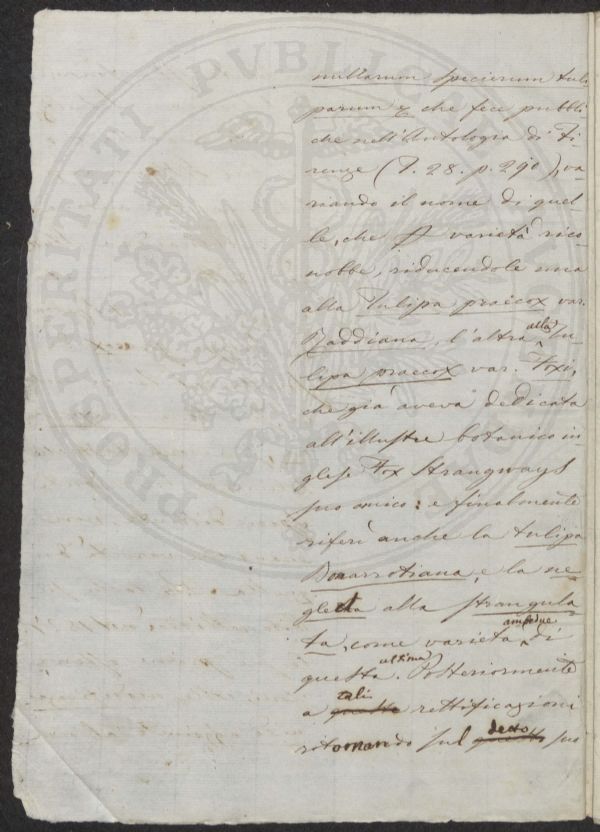 nullarum specierum tuli
parum & che fece pubbli
che nell'Antologia di Fi
renze (T. 28. p. 290), va
riando il nome di quel
le, che p varietà rico
nobbe, riducendole una
alla Tulipa praecox var.
Raddiana, l'altra alla Tu
lipa praecox var. Foxi,
che già aveva dedicata
all'illustre botanico in
glese Fox Strangways
suo amico: e finalmente
riferì anche la tulipa
Bonarrotiana, e la ne
glecta alla strangula
ta, come varietà ambedue di
questa ultima. Posteriormente
a tali rettificazioni
ritornando sul detto suo
PROSPERITATI PVBLICAE